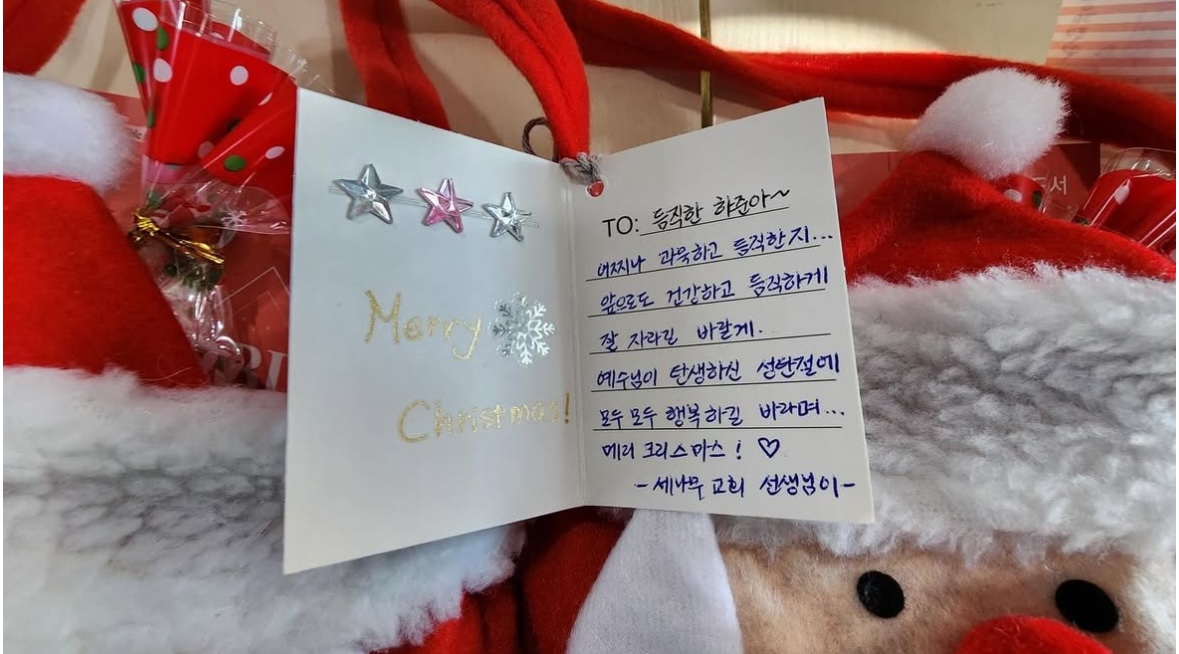 Merry
Christmas!
TO: 듬직한 하준아~
어찌나 과묵하고 듬직한지...
앞으로도 건강하고 듬직하게
잘 자라길 바랄게.
예수님이 탄생하신 성탄절에
모두 모두 행복하길 바라며...
메리 크리스마스! ♡
-세나무 교회 선생님이-